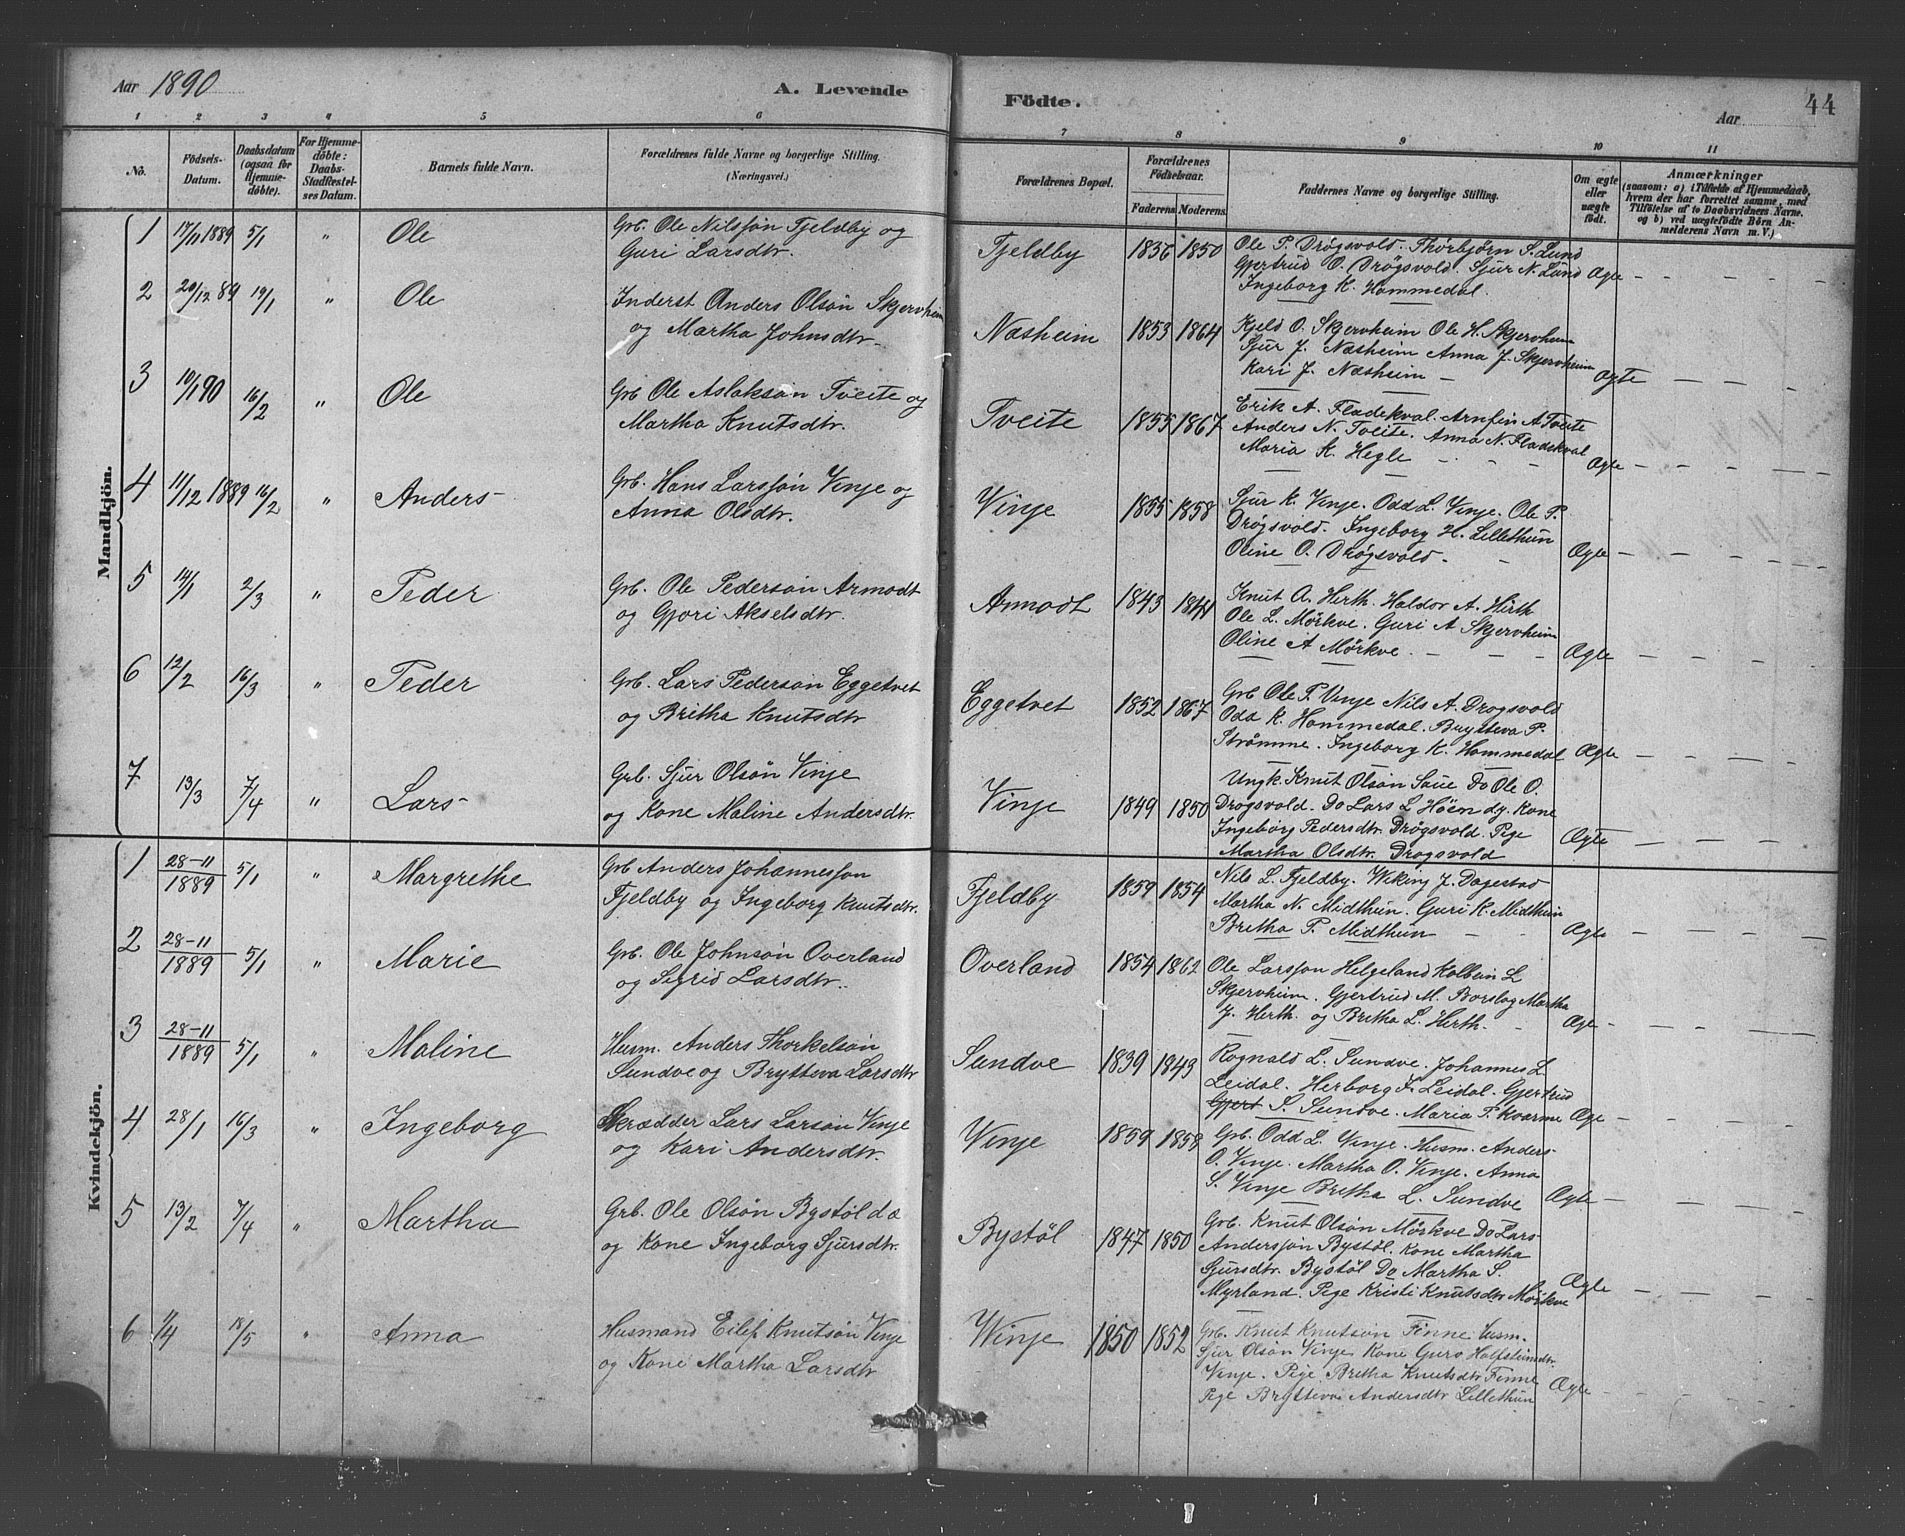 Aar 1890
A. Levende Födte.
Aar
44
1 2 3 4 5 6 7 8 9 10 11
No.
Födsels-Datum.
Daabsdatum (ogsaa for Hjemmedöbte).
For Hjemmedöbte: Daabs-Stadfestelses Datum.
Barnets fulde Navn.
Forældrenes fulde Navne og borgerlige Stilling.
(Næringsvei.)
Forældrenes Bopæl.
Forældrenes Födselsaar.
Faderens Moderens
Faddernes Navne og borgerlige Stilling.
Om ægte eller uægte födt.
Anmærkninger
(saasom: a) i Tilfælde af Hjemmedaab, hvem der har forrettet samme, med Tilföielse af to Daabsvidners Navne. og b) ved uægtefödte Börn Anmelderens Navn m. V.)
Mandkjön.
1 17/11 1889 5/1 " Ole
Grb. Ole Nilssøn Fjeldby og
Guri Larsdtr.
Fjeldby 1836 1850
Ole P. Drøgsvold. Thorbjörn S. Lund
Gjertrud O. Drøgsvold. Sjur N. Lund
Ingeborg K. Hommedal.
Ægte
2 29/12 89 19/1 " Ole
Inderst Anders Olsøn Skjervheim
og Martha Johnsdtr.
Næsheim 1853 1864
Kjeld O. Skjervheim Ole H. Skjervheim
Sjur J. Næsheim Anna J. Skjervheim
Kari J. Næsheim
Ægte
3 10/1 90 16/2 " Ole
Grb Ole Aslaksøn Tveite og
Martha Knutsdtr.
Tveite 1855 1867
Erik A. Fladekval. Arnfin A Tveite
Anders N. Tveite. Anna N. Fladekval
Maria K. Hegle
Ægte
4 11/12 1889 16/2 " Anders
Grb. Hans Larssøn Vinje og
Anna Olsdtr.
Vinje 1855 1858
Sjur K. Vinje. Odd L. Vinje. Ole P.
Drøgsvold. Ingeborg H. Lillethun
Oline O. Drøgsvold.
Ægte
5 14/1 2/3 " Peder
Grb. Ole Pedersøn Armodt
og Gjøri Akselsdtr.
Armodt 1843 1841
Knut A. Hirth. Haldor A. Hirth
Ole L. Mørkve. Guri A Skjervheim
Oline A Mørkve.
Ægte
6 12/2 16/3 " Peder
Grb. Lars Pedersøn Eggetvet
og Britha Knutsdtr
Eggetvet 1852 1867
Grb Ole P. Vinje Nils A. Drogsvold
Odd K. Hommedal. Brytteva P.
Strømme. Ingeborg K. Hommedal
Ægte
7 13/3 7/4 " Lars
Grb. Sjur Olsøn Vinje
og Kone Maline Andersdtr.
Vinje 1849 1850
Ungk. Knut Olsøn Saue Do Ole O.
Drøgsvold. Do Lars L Høen og Kone
Ingeborg Pedersdtr. Drøgsvold. Pige
Martha Olsdtr. Drøgsvold
Ægte
Kvindekjön.
1 28-11 1889 5/1 " Margrethe
Grb Anders Johannessøn
Fjeldby og Ingeborg Knutsdtr.
Fjeldby 1859 1854
Nils L. Fjeldby. Wiking J. Dagestad
Martha N. Midthun. Guri K. Midthun
Britha P. Midthun
Ægte
2 28-11 1889 5/1 " Marie
Grb. Ole Johnsøn Overland
og Sigrid Larsdtr.
Overland 1854 1862
Ole Larssøn Helgeland Kolbein L
Skjervheim. Gjertrud M. Borslag Martha
J. Herth. og Britha L. Herth.
Æge
3 28-11 1889 5/1 " Maline
Husm. Anders Thorkelsøn
Sundve og Brytteva Larsdtr
Sundve 1839 1843
Rognald L. Sundve. Johannes L.
Leidal. Herborg J. Leidal. Gjertrud
Gjert S. Sundve. Maria P. Kvarme
Æge
4 28/1 16/3 " Ingeborg
Skrædder Lars Larsøn Vinje
og Kari Andersdtr.
Vinje 1859 1858
Grb. Odd L. Vinje. Husm. Anders
O. Vinje. Martha O. Vinje. Anna
S. Vinje Britha L. Sundve
Ægte
5 13/2 7/4 " Martha
Grb. Ole Olsøn Bystöl
og Kone Ingeborg Sjursdtr.
Bystöl 1847 1850
Grb. Knut Olsøn Mörkve Do Lars
Anderssøn Bystöl. Kone Martha
Sjursdtr. Bystöl Do Martha S.
Myrland. Pige Kristi Knutsdtr Mørkve
Ægte
6 1/4 18/5 " Anna
Husmand Eilef Knutsøn Vinje
og Kone Martha Larsdtr
Winje 1850 1852
Grb. Knut Knutsøn Finne Husm.
Sjur Olsøn Vinje Kone Guro Halfsteinsdtr.
Vinje. Pige Britha Knutsdtr Finne
Pige Brytteva Andersdtr Lillethun
Ægte